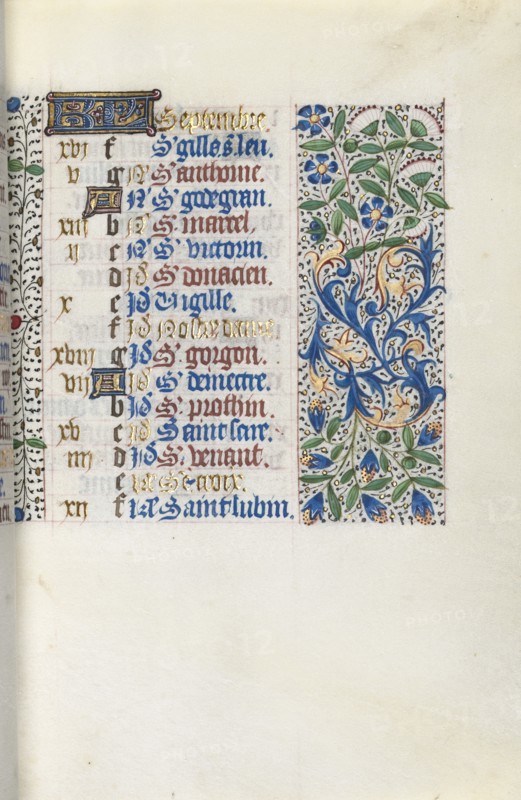 KL Septembre.
xvj f S' gilles leu.
v g N S' anthoine.
A N S' godegran.
xiij b N S' marcel.
ij c N S' victorin.
d Id S' donacien.
x e Id Vigille.
f Id Nostre dame
xviij g Id S' gorgon.
vij A Id S' demetre.
b Id S' prothin.
xv c Id Saint sire.
iiij d Id S' venant.
e Ste croix.
xij f kl Saint lubin.